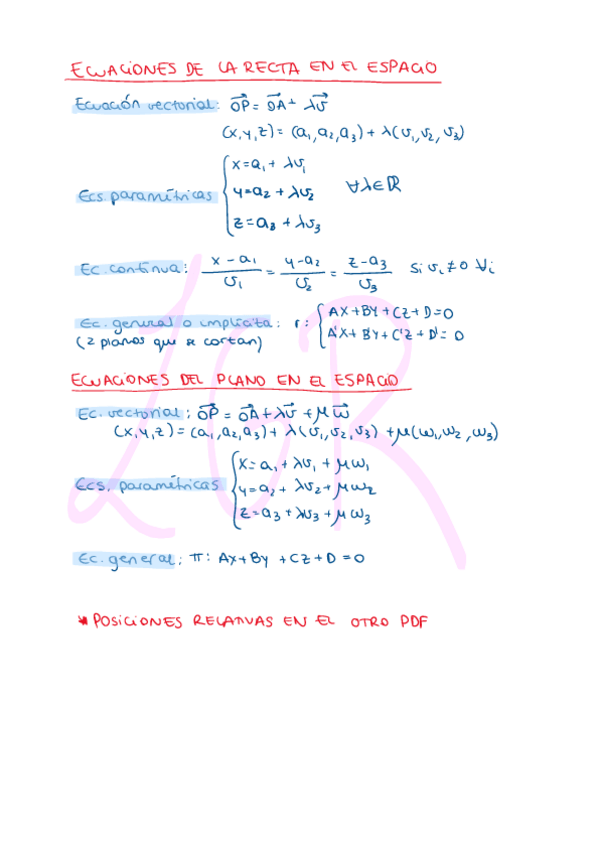 ECUACIONES DE LA RECTA EN EL ESPACIO
Ecuación vectorial: OP⃗ = OA⃗ + λv⃗
(x,y,z) = (a₁,a₂,a₃) + λ(v₁,v₂,v₃)
x = a₁ + λv₁
Ecs. paramétricas { y = a₂ + λv₂ ∀λ∈ℝ
z = a₃ + λv₃
Ec. continua: (x-a₁)/v₁ = (y-a₂)/v₂ = (z-a₃)/v₃ si vᵢ ≠ 0 ∀i
Ec. general o implícita: r: { AX+BY+CZ+D=0
(2 planos que se cortan) A'X+B'Y+C'Z+D'=0
ECUACIONES DEL PLANO EN EL ESPACIO
Ec. vectorial: OP⃗ = OA⃗ + λv⃗ + μw⃗
(x,y,z) = (a₁,a₂,a₃) + λ(v₁,v₂,v₃) + μ(w₁,w₂,w₃)
x = a₁ + λv₁ + μw₁
Ecs. paramétricas { y = a₂ + λv₂ + μw₂
z = a₃ + λv₃ + μw₃
Ec. general: π: Ax+By+CZ+D=0
* POSICIONES RELATIVAS EN EL OTRO PDF